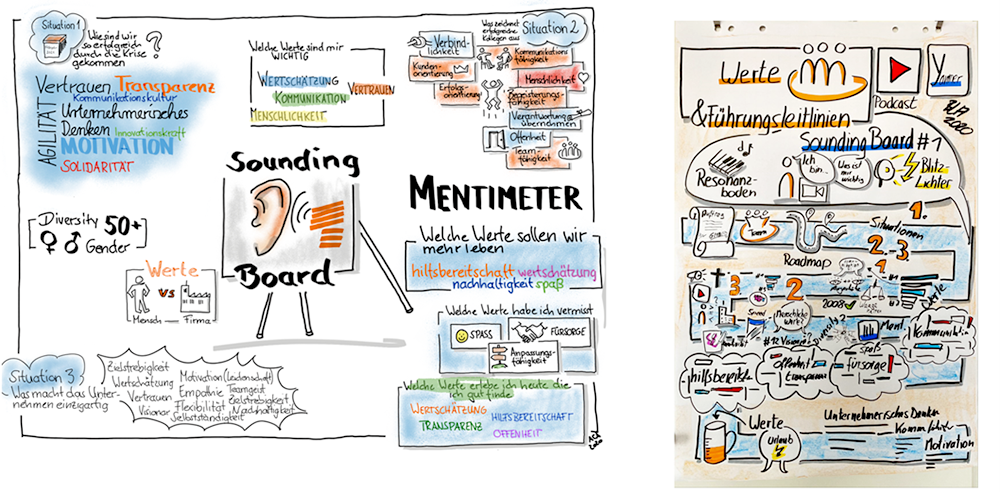 Situation 1
Wie sind wir
so erfolgreich
durch die Krise
gekommen
?
Vertrauen Transparenz
Kommunikationskultur
AGILITÄT
Unternehmerisches
Denken Innovationskraft
MOTIVATION
SOLIDARITÄT
Welche Werte sind mir
WICHTIG
WERTSCHÄTZUNG
VERTRAUEN
KOMMUNIKATION
MENSCHLICHKEIT
Was zeichnet
erfolgreiche
Kollegen aus
Situation 2
Verbind-
lichkeit
Kommunikations
fähigkeit
Kunden-
orientierung
Menschlichkeit
Erfolgs-
orientierung
Begeisterungs-
fähigkeit
Verantwortung
übernehmen
Offenheit
Team-
fähigkeit
Sounding
Board
MENTIMETER
Diversity 50+
Gender
Werte
vs
Mensch
Firma
Welche Werte sollen wir
mehr leben
hilfsbereitschaft wertschätzung
nachhaltigkeit spaß
Welche Werte habe ich vermisst
SPASS
FÜRSORGE
Anpassungs-
fähigkeit
Welche Werte erlebe ich heute die
ich gut finde
WERTSCHÄTZUNG
HILFSBEREITSCHAFT
TRANSPARENZ
OFFENHEIT
Situation 3
Was macht das Unter-
nehmen einzigartig
Zielstrebigkeit
Wertschätzung
Vertrauen
Visionär
Motivation (Leidenschaft)
Empathie Teamgeist
Flexibilität Zielstrebigkeit
Nachhaltigkeit
Selbstständigkeit
Werte
Podcast
&Führungsleitlinien
2020
Sounding Board #1
Resonanz-
boden
Ich
bin...
Was ist
mir
wichtig
Blitz
Lichter
1.
Situationen
2.-3.
Team
Roadmap
1
3.
2
2008
Menschliche
Werte?
Werte
Spaß
Kommunikation
hilfsbereitschaft
Offenheit
Transparenz
fürsorge
Werte
Urlaub
Unternehmerisches Denken
Motivation